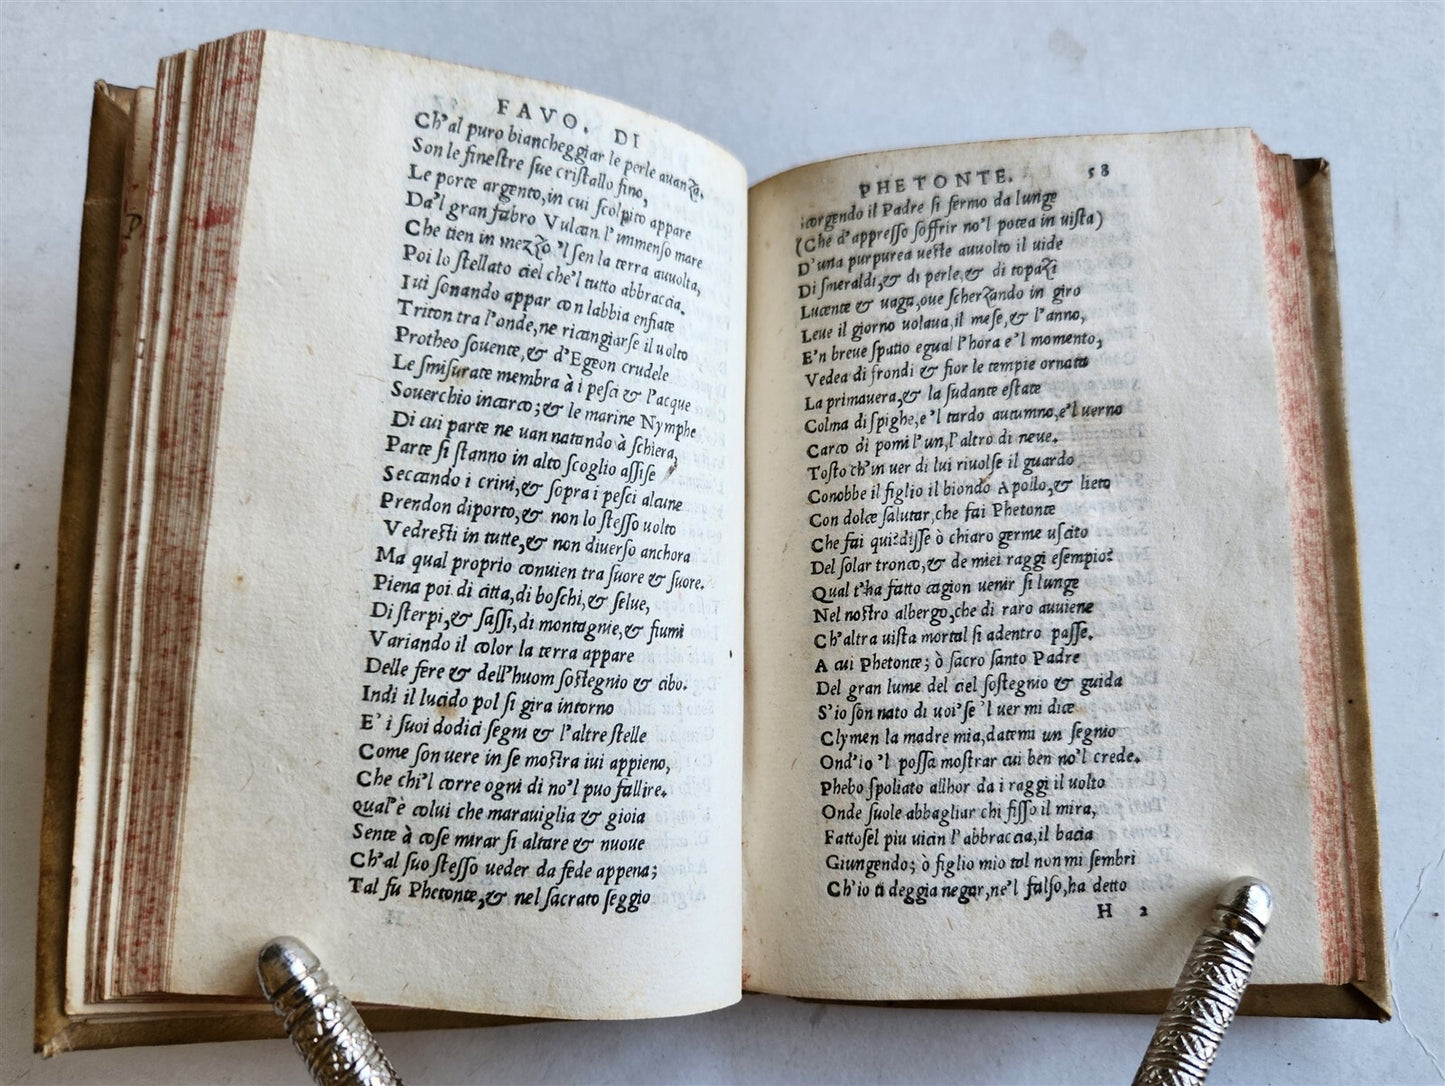 FAVO. DI
Ch'al puro biancheggiar le perle auanza.
Son le finestre sue cristallo fino,
Le porte argento, in cui scolpito appare
Da'l gran fabro Vulcan l'immenso mare
Che tien in mezzo 'l sen la terra auuolta,
Poi lo stellato ciel che'l tutto abbraccia.
Iui sonando appar con labbia enfiate
Triton tra l'onde, ne ricangiarse il uolto
Protheo souente, & d'Egeon crudele
Le smisurate membra à i pesci & l'acque
Souerchio incarco; & le marine Nymphe
Di cui parte ne uan natando à schiera,
Parte si stanno in alto scoglio assise
Seccando i crini, & sopra i pesci alcune
Prendon diporto, & non lo stesso uolto
Vedresti in tutte, & non diuerso anchora
Ma qual proprio conuien tra suore & suore.
Piena poi di citta, di boschi, & selue,
Di sterpi, & sassi, di montagnie, & fiumi
Variando il color la terra appare
Delle fere & dell'huom sostegnio & cibo.
Indi il lucido pol si gira intorno
E' i suoi dodici segni & l'altre stelle
Come son uere in se mostra iui appieno,
Che chi'l corre ogni di no'l puo fallire.
qual'è colui che marauiglia & gioia
Sente à cose mirar si altare & nuoue
Ch'al suo stesso ueder da fede appena;
Tal fu Phetonte, & nel sacrato seggio
PHETONTE. 58
scorgendo il Padre si fermo da lunge
(Che d'appresso soffrir no'l potea in uista)
D'una purpurea ueste auuolto il uide
Di smeraldi, & di perle & di topazi
Lucente & uaga, oue scherzando in giro
Leue il giorno uolaua, il mese, & l'anno,
E'n breue spatio egual l'hora e'l momento,
Vedea di frondi & fior le tempie ornata
La primauera, & la sudante estate
Colma di spighe, e'l tardo autumno, e'l uerno
Carco di pomi l'un, l'altro di neue.
Tosto ch'in uer di lui riuolse il guardo
Conobbe il figlio il biondo Apollo, & lieto
Con dolce salutar, che fai Phetonte
Che fai qui? disse ò chiaro germe uscito
Del solar tronco, & de miei raggi esempio?
Qual t'ha fatto cagion uenir si lunge
Nel nostro albergo, che di raro auuiene
Ch'altra uista mortal si adentro passe.
A cui Phetonte; ò sacro santo Padre
Del gran lume del ciel sostegnio & guida
S'io son nato di uoi 'se 'l uer mi dice
Clymen la madre mia, datemi un segnio
Ond'io 'l possa mostrar cui ben no'l crede.
Phebo spoliato allhor da i raggi il uolto
Onde suole abbagliar chi fisso il mira,
Fattosel piu uicin l'abbraccia, il bacia
Giungendo; ò figlio mio tal non mi sembri
Ch'io ti deggia negar, ne'l falso, ha detto
H 2